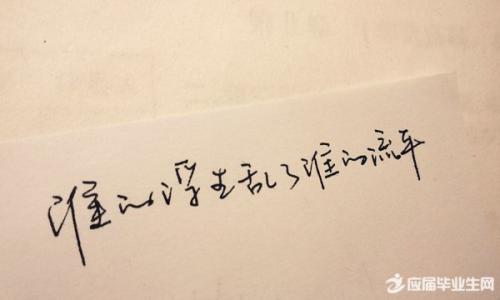 谁的浮生乱了谁的流年
应届毕业生网